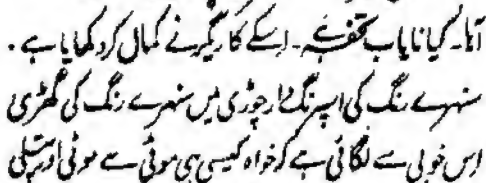 آہا۔ کیا نایاب تحفہ ہے۔ اسکے کاریگر نے کمال کر دکھایا ہے۔
سنہرے رنگ کی اسپرنگدار چوڑی میں سنہرے رنگ کی گھڑی
اس خوبی سے لگائی ہے کہ خواہ کیسی ہی موٹی سے موٹی اور پتلی